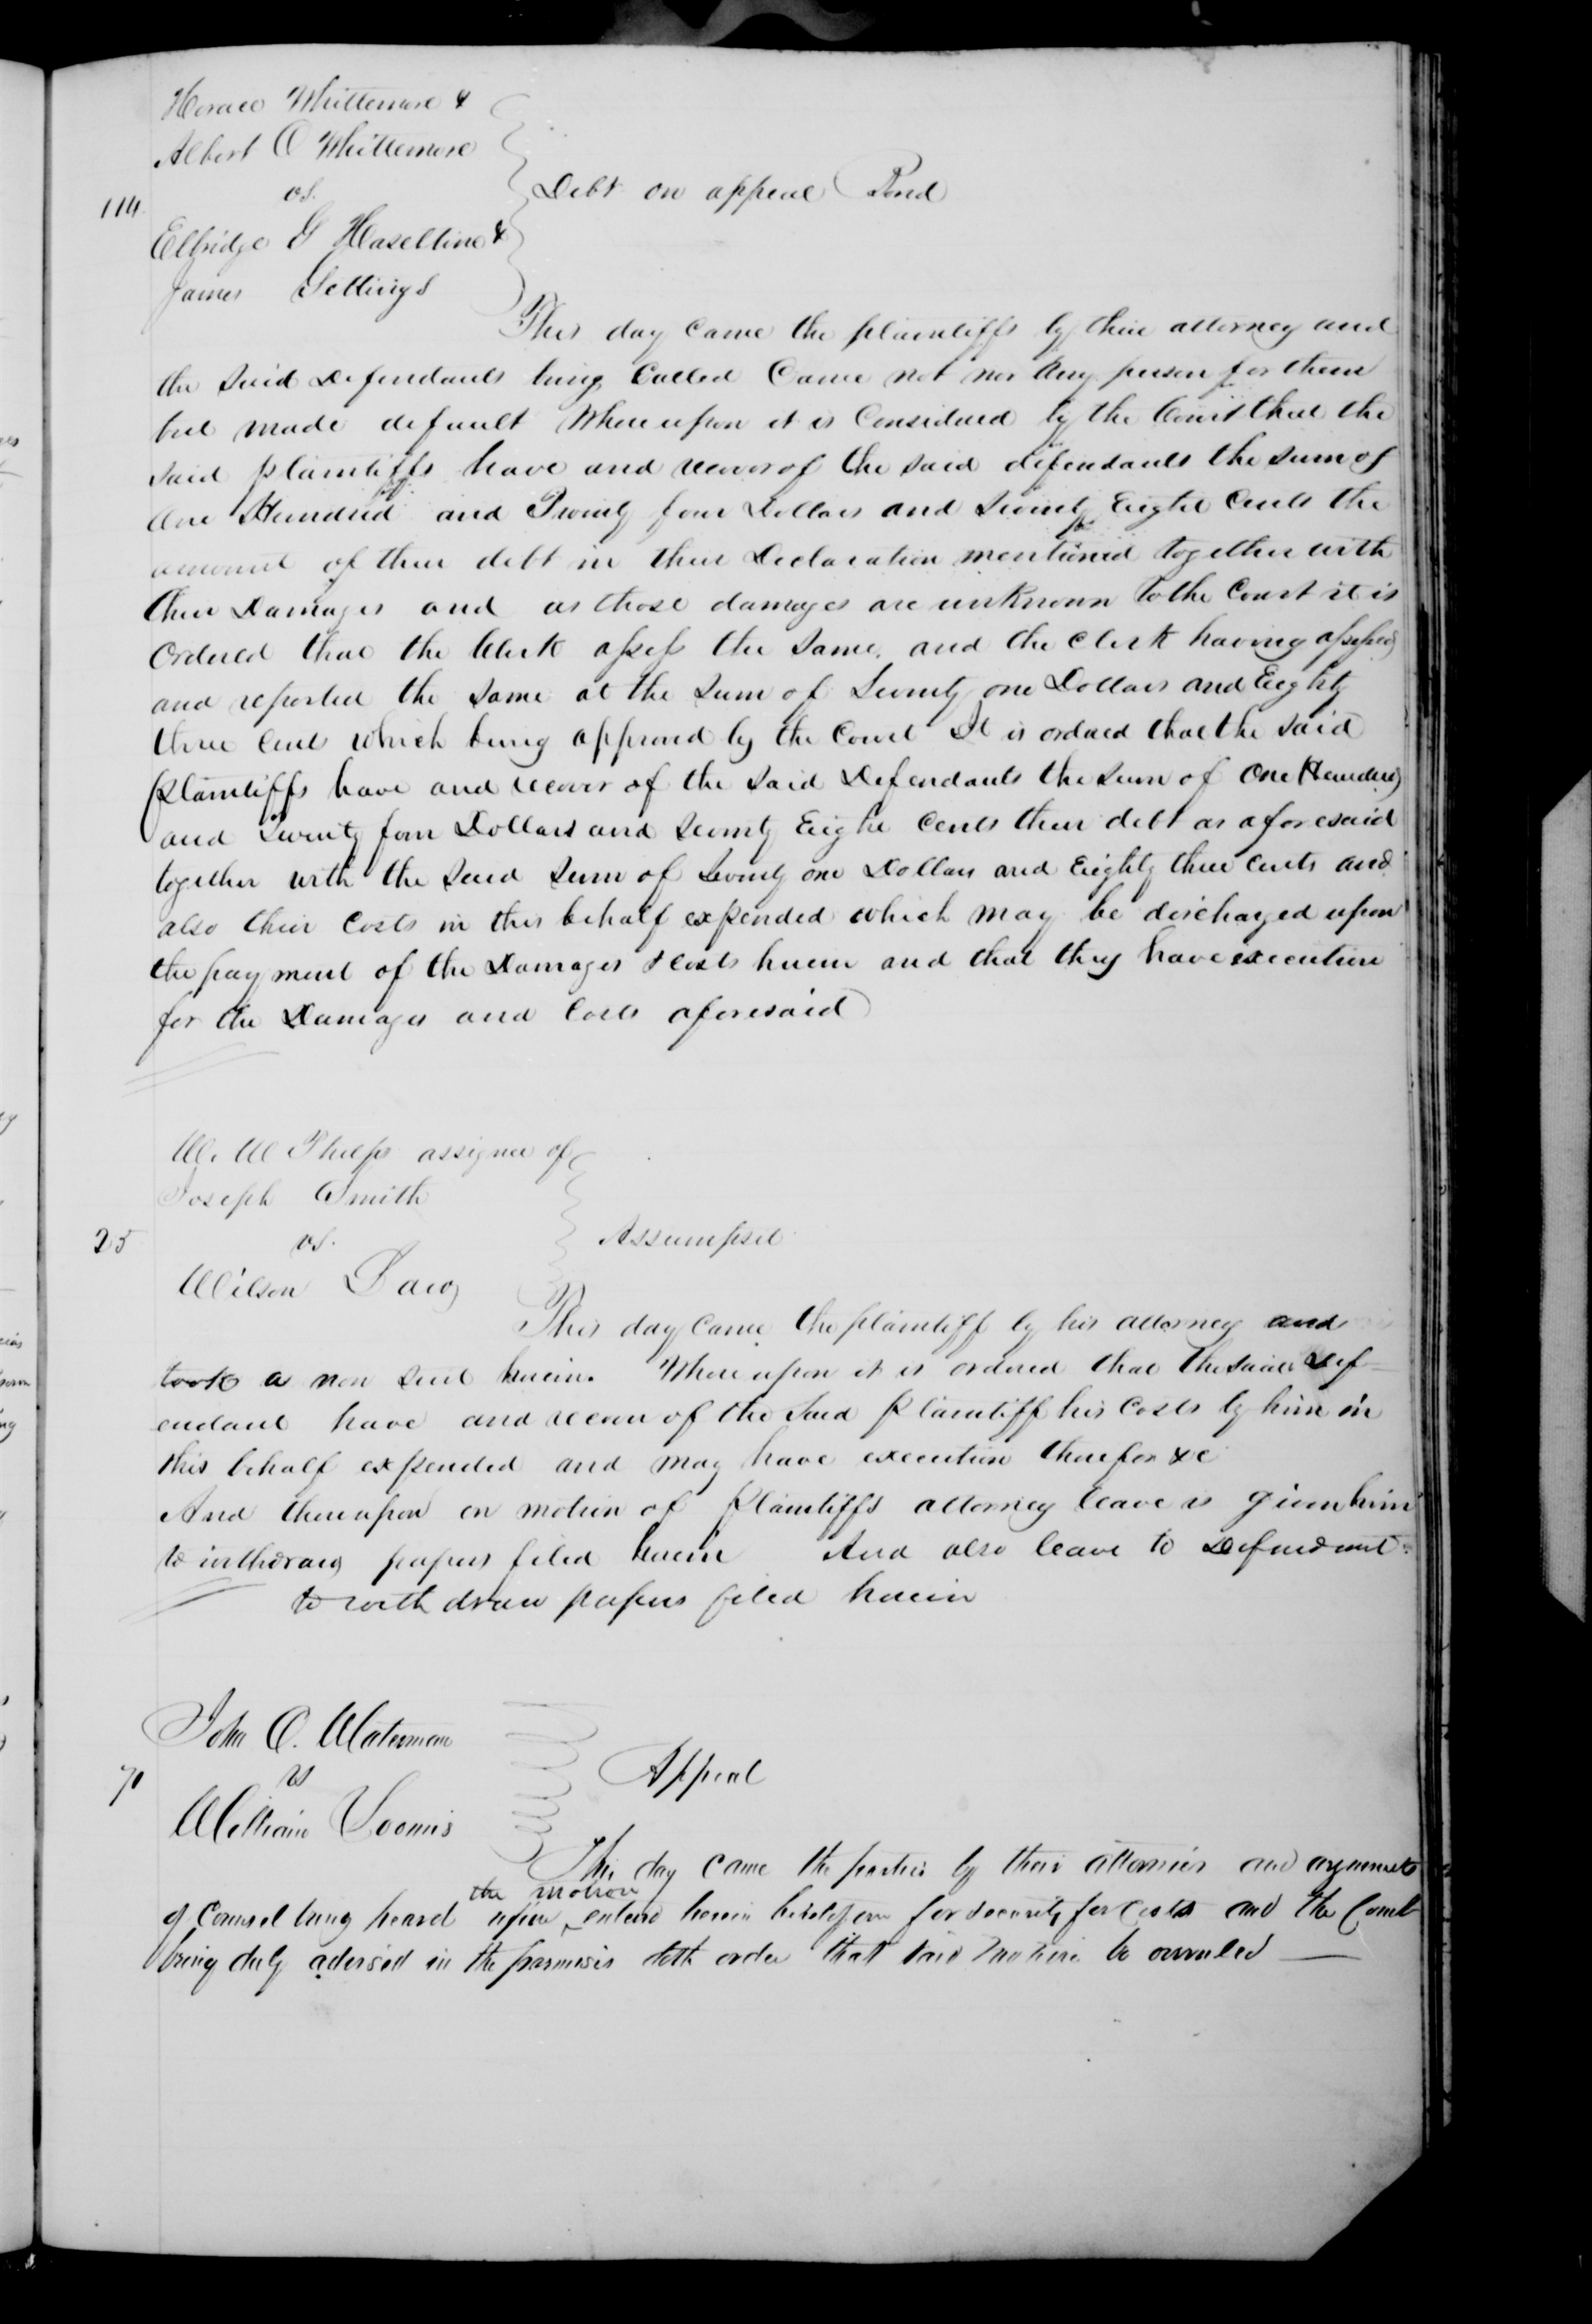 Horace Whittemore &
Albert O Whittemore
vs.
114
Debt on appeal Bond
Elbridge G Haseltine &
James Gettings
This day came the plaintiffs by their attorney and
the said Defendants being Called Came not nor Any person for them
but made default Whereupon it is Considered by the Court that the
said plaintiffs have and recover of the said defendants the sum of
One Hundred and Twenty four Dollars and Seventy Eight Cents the
amount of their debt in their Declaration mentioned together with
their Damages and as those damages are unknown to the Court it is
Ordered that the Clerk assess the same. and the Clerk having assessed
and reported the same at the sum of Seventy one Dollars and Eighty
three Cents which being approved by the Court It is ordered that the said
plaintiffs have and recover of the said Defendants the sum of One Hundred
and Twenty four Dollars and Seventy Eight Cents their debt as aforesaid
together with the said sum of Seventy one Dollars and Eighty three Cents and
also their Costs in this behalf expended which may be discharged upon
the payment of the Damages & Costs herein and that they have execution
for the Damages and Costs aforesaid
W. W Phelps assignee of
Joseph Smith
25 vs. Assumpsit
Wilson Law
This day came the plaintiff by his attorney and
took a non suit herein. Whereupon it is ordered that the said Def=
endant have and recover of the said plaintiff his Costs by him in
this behalf expended and may have execution therefor &c
And thereupon on motion of Plaintiffs attorney leave is given him
to withdraw papers filed herein And also leave to Defendant
to withdraw papers filed herein
John C. Waterman
71 vs Appeal
William Loomis
This day came the parties by their attornies and arguments
the motion
of Counsel being heard upon entered herein heretofore for security for Costs and the Court
being duly advised in the premises doth order that said motion be overruled —